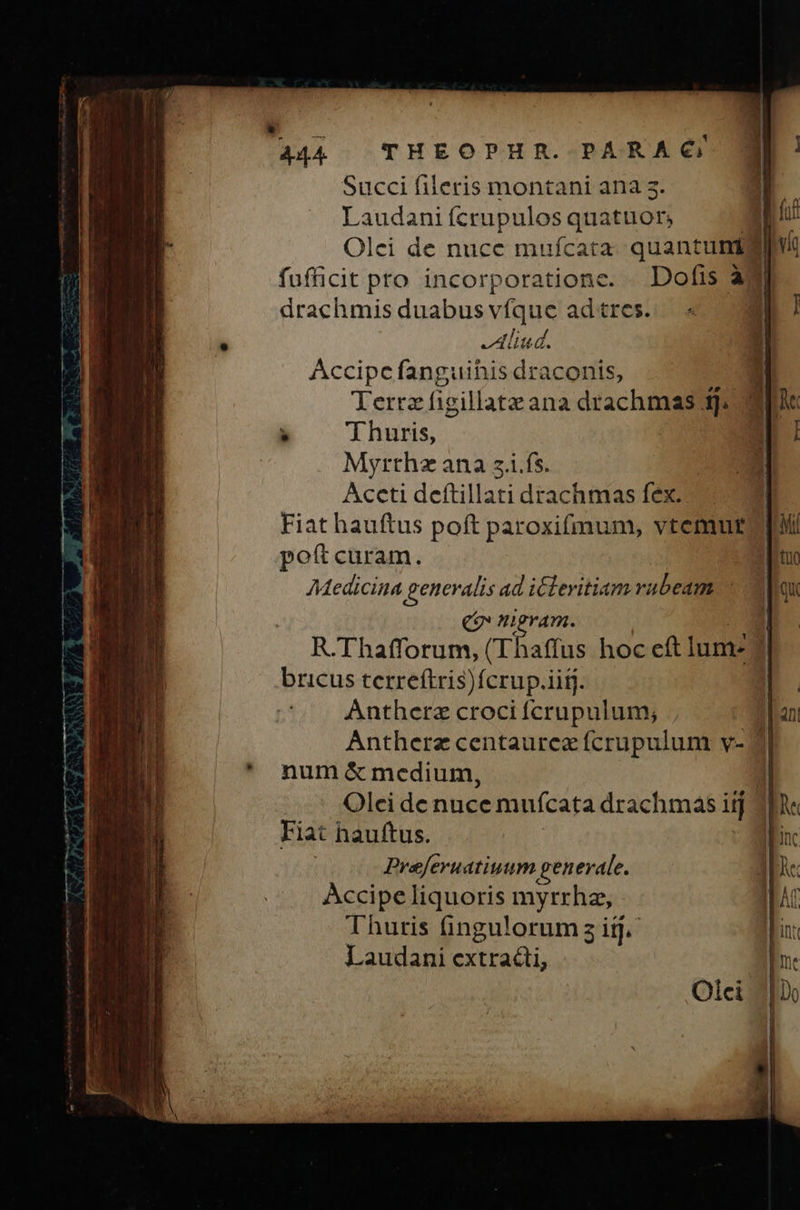 444 THEOPHR. PARAC.
Succi ſileris montani ana ʒ.
Laudani ſcrupulos quatuor,
Olei de nuce muſcata quantum
ſufficit pro incorporatione. Doſis à
drachmis duabus vſque ad tres.
Aliud.
Accipe ſanguinis draconis,
Terræ ſigillatæ ana drachmas ij.
Thuris,
Myrrhæ ana ʒ.i.ſs.
Aceti deſtillati drachmas ſex.
Fiat hauſtus poſt paroxiſmum, vtemur
poſt curam.
Medicina generalis ad icteritiam rubeam
& nigram.
R. Thaſſorum, (Thaſſus hoc eſt lum-
bricus terreſtris) ſcrup. iiij.
Antheræ croci ſcrupulum,
Antheræ centaureæ ſcrupulum v-
num & medium,
Olei de nuce muſcata drachmas iij
Fiat hauſtus.
Præſeruatiuum generale.
Accipe liquoris myrrhæ,
Thuris ſingulorum ʒ iij.
Laudani extracti,
Olei